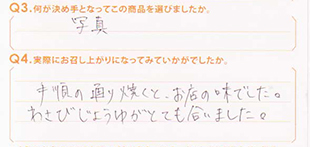 Q3.何が決め手となってこの商品を選びましたか。
写真
Q4.実際にお召し上がりになってみていかがでしたか。
手順の通り焼くと、お店の味でした。
わさびじょうゆがとても合いました。